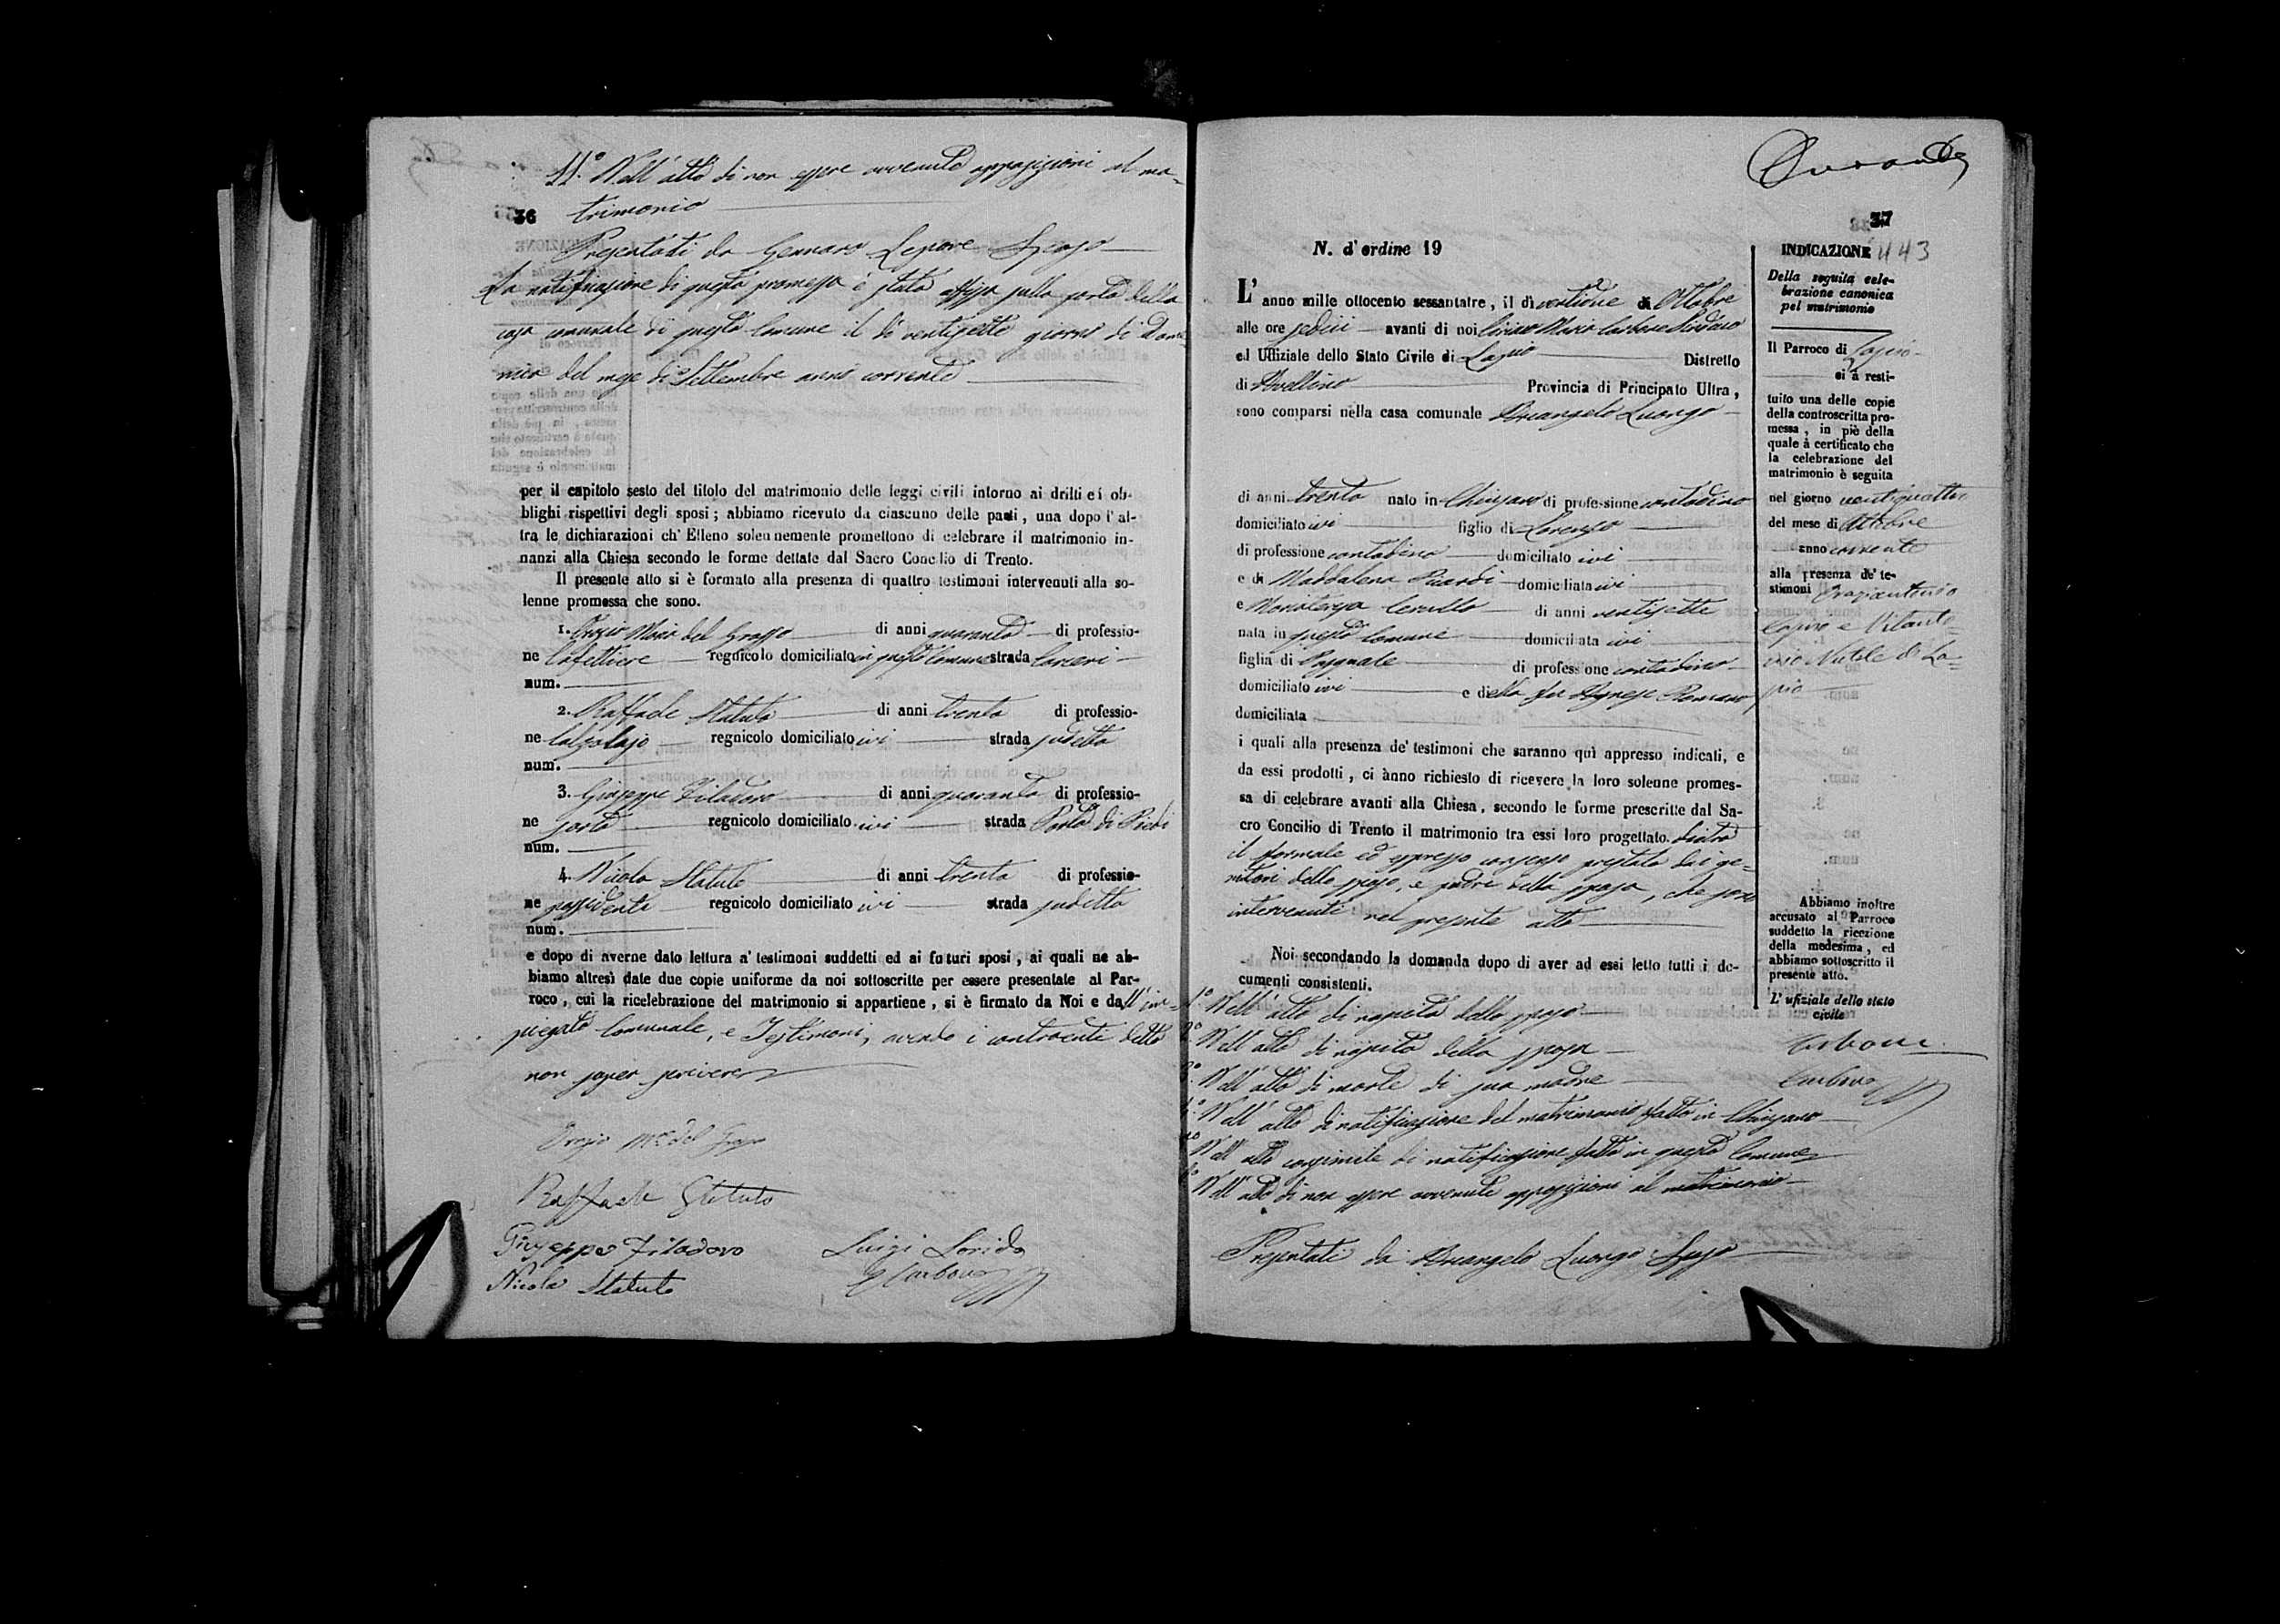 11.° Nell'atto di non essere avvenute opposizioni al ma-
36 trimonio
Presentati da Gennaro Lepore Sposo
La notificazione di questa promessa è stata affissa sulla porta della
casa comunale di questo Comune il dì ventisette giorno di Dome-
nica del mese di Settembre anno corrente
per il capitolo sesto del titolo del matrimonio delle leggi civili intorno ai dritti ed ob-
blighi rispettivi degli sposi; abbiamo ricevuto da ciascuno delle parti, una dopo l'al-
tra le dichiarazioni ch'Elleno solennemente promettono di celebrare il matrimonio in-
nanzi alla Chiesa secondo le forme dettate dal Sacro Concilio di Trento.
Il presente atto si è formato alla presenza di quattro testimoni intervenuti alla so-
lenne promessa che sono.
1. Orazio Maria del Grosso di anni quaranta di professio-
ne Cafettiere regnicolo domiciliato in questo Comune strada Carceri
num.
2. Raffaele Statuto di anni trenta di professio-
ne Calzolajo regnicolo domiciliato ivi strada sudetta
num.
3. Giuseppe Filadoro di anni quaranta di professio-
ne sarto regnicolo domiciliato ivi strada Porta di Piedi
num.
4. Nicola Statuto di anni trenta di professio-
ne possidente regnicolo domiciliato ivi strada sudetta
num.
e dopo di averne dato lettura a' testimoni suddetti ed ai futuri sposi, ai quali ne ab-
biamo altresì date due copie uniforme da noi sottoscritte per essere presentate al Par-
roco, cui la ricelebrazione del matrimonio si appartiene, si è firmato da Noi e dall'im-
piegato Comunale, e Testimoni, avendo i contraenti detto
non saper scrivere
Orazio M.a del Grosso
Raffaele Statuto
Giuseppe Filadoro Luigi
Nicola Statuto Carbone
37
443
N. d'ordine 19
L'anno mille ottocento sessantatre, il dì ventidue di Ottobre
alle ore sedici avanti di noi Maria Carbone Sindaco
ed Uffiziale dello Stato Civile di Lapio Distretto
di Avellino Provincia di Principato Ultra,
sono comparsi nella casa comunale Arcangelo Luongo
di anni trenta nato in Chiusano di professione contadino
domiciliato ivi figlio di Lorenzo
di professione contadino domiciliato ivi
e di Maddalena domiciliata ivi
e Mariateresa Cerullo di anni ventisette
nata in questo Comune domiciliata ivi
figlia di Pasquale di professione contadino
domiciliato ivi e della fu Agnese Romano
domiciliata
i quali alla presenza de' testimoni che saranno quì appresso indicati, e
da essi prodotti, ci ànno richiesto di ricevere la loro solenne promes-
sa di celebrare avanti alla Chiesa, secondo le forme prescritte dal Sa-
cro Concilio di Trento il matrimonio tra essi loro progettato. dietro
il formale ed espresso consenso prestato dai ge-
nitori dello sposo, e padre della sposa, che sono
intervenuti nel presente atto
Noi secondando la domanda dopo di aver ad essi letto tutti i do-
cumenti consistenti.
1.° Nell'atto di nascita dello sposo
2.° Nell'atto di nascita della sposa
3.° Nell'atto di morte di sua madre
4.° Nell'atto di notificazione del matrimonio fatto in Chiusano
5.° Nell'atto consimile di notificazione fatto in questo Comune
6.° Nell'atto di non essere avvenute opposizioni al matrimonio
Presentati da Arcangelo Luongo Sposo
INDICAZIONE
Della seguita cele-
brazione canonica
pel matrimonio
Il Parroco di Lapio
ci à resti-
tuito una delle copie
della controscritta pro-
messa, in piè della
quale à certificato che
la celebrazione del
matrimonio è seguita
nel giorno ventiquattro
del mese di Ottobre
anno corrente
alla presenza de' te-
stimoni Oraziantonio
Carpino e Vitanto-
nio Natale di La-
pio
Abbiamo inoltre
accusato al Parroco
suddetto la ricezione
della medesima, ed
abbiamo sottoscritto il
presente atto.
L'ufiziale dello stato
civile
Carbone
Carbone